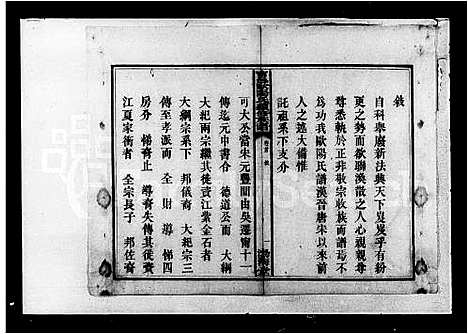 敘
自科舉廢新法興天下岌岌乎有紛
更之勢而欲聯渙散之人心親親尊
尊悉軌於正非敬宗收族而譜焉不
爲功我歐陽氏譜漢晉唐宋以來前
人之述大備惟
託祖系下支分
可大丞當宋元豐間由吳遷甯十一
傳迄元中書令 德道公而 大綱
大紀兩宗繼其後者江紫金石者
大綱宗系下 邦儀裔 大紀宗三
傳至孝派而 全 財 導 悌四
房分 悌裔止 導裔失傳其從賚
江夏家術者 全宗長子 邦佐裔